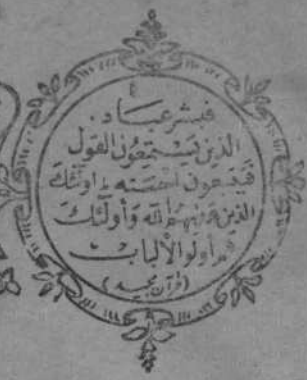 فبشر عباد.
الذین یستمعون القول
فیتبعون احسنه ط اولٰئك
الذین هدیهم الله و أولٰئك
هم أولو الألباب
(قرآن مجید)